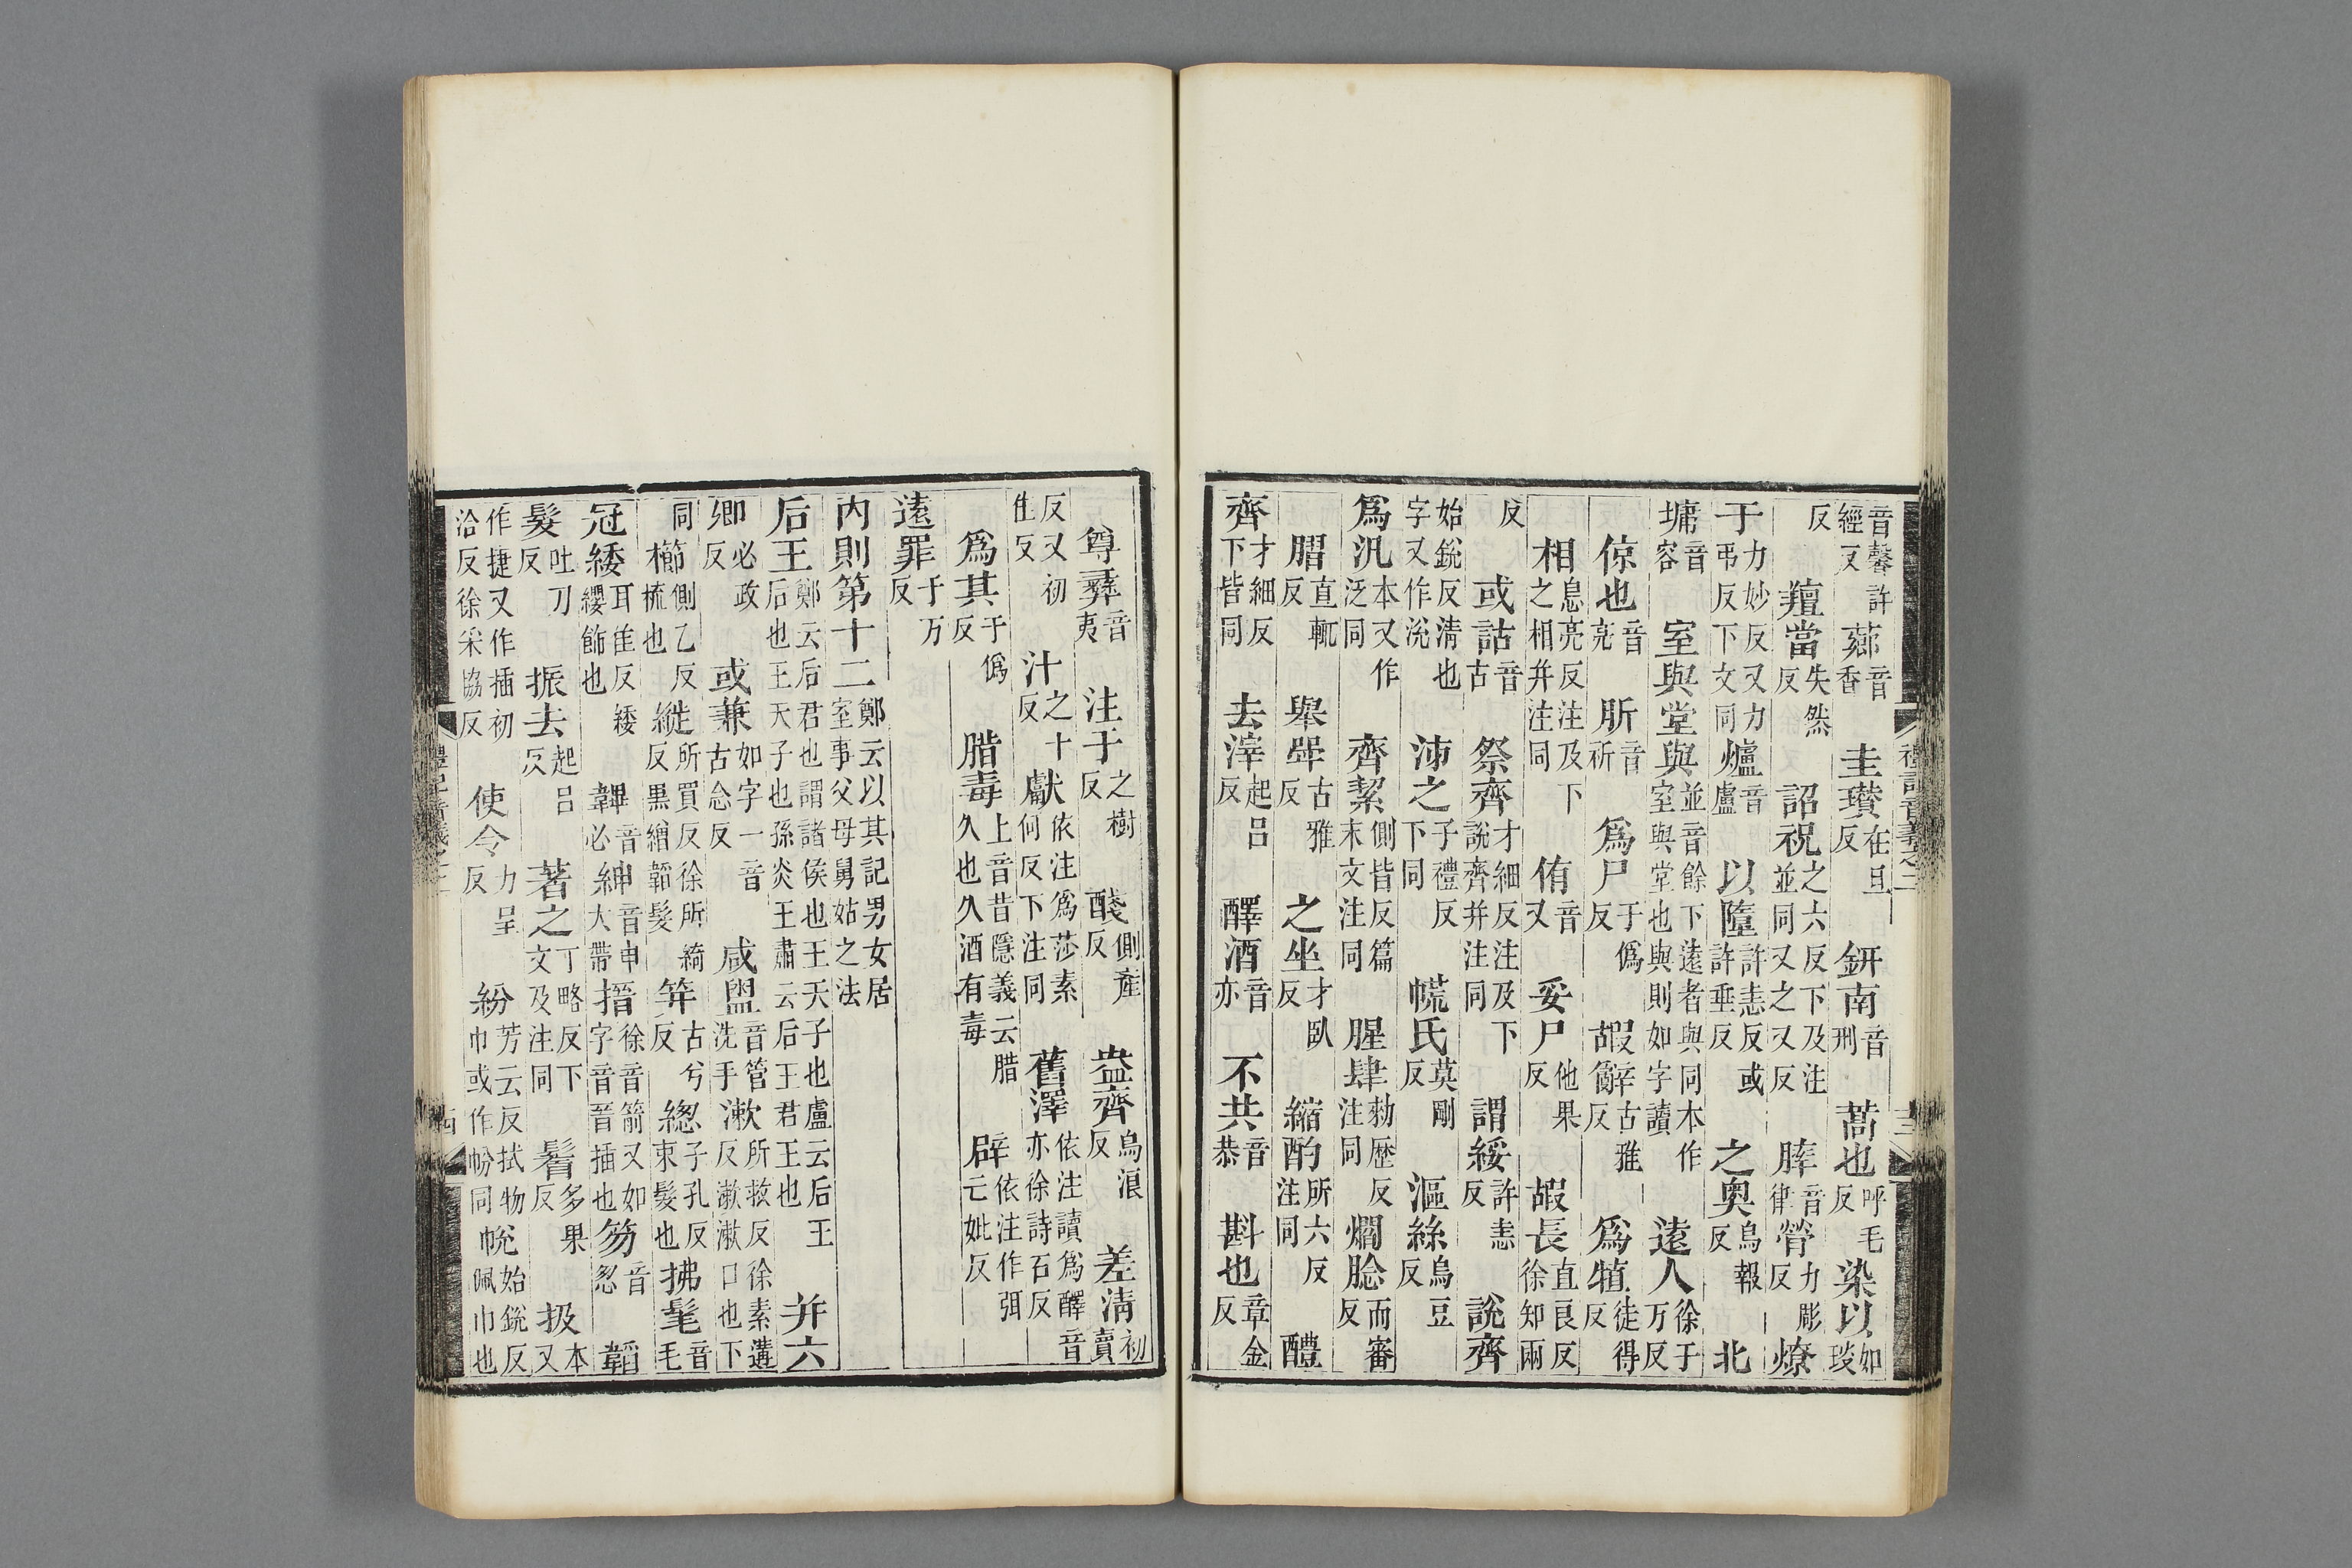 音馨許經反反 薌音香 圭瓚在旦反 鈃南音刑 蒿也呼毛反 染以如琰
反 羶當失然反 詔祝之六反下及注並同又之又反 膟音律 膋力彫反 燎
于力妙反又力弔反下文同 爐音盧 以隋許恚反或許垂反 之奧烏報反 北
墉音容 室與堂與並音餘下遠者與同本作室與堂也與則如字讀 遠人徐于万反
倞也音亮 肵音祈 爲尸于僞反 嘏辭古雅反 爲犆徒得反
相息亮反注及下之相幷注同 侑音又 妥尸他果反 嘏長直良反徐知兩
反 或詁音古 祭齊才細反注及下說齊幷注同 謂綏許恚反 說齊
始銳反清也字又作涗 沛之子禮反下同 㡛氏莫剛反 漚絲烏豆反
爲汎本又作泛同 齊絜側皆反篇末文注同 腥肆勑歷反注同 爓腍而審反
膟直輒反 舉斝古雅反 之坐才臥反 縮酌所六反注同 醴
齊才細反下皆同 去滓起呂反 醳酒音亦 不共音恭 斟也章金反
禮記音義之二
尊彝音夷 注于之樹反 醆側產反 盎齊烏浪反 差淸初賣
反又初佳反 汁之十反 獻依注爲莎素何反下注同 舊澤依注讀爲醳音亦徐詩石反
爲其于僞反 腊毒上音昔隱義云腊久也久酒有毒 辟依注作弭亡妣反
遠罪于万反
內則第十二鄭云以其記男女居室事父母舅姑之法
后王鄭云后君也謂諸侯也王天子也盧云后王后也王天子也孫炎王肅云后王君王也 幷六
卿必政反 或兼如字一音古念反 咸盥音管洗手 漱所救反徐素遘反漱漱口也下
同 櫛側乙反梳也 縰所買反徐所綺反黑繒韜髮 笄古兮反 緫子孔反束髮也 拂髦音毛
冠緌耳隹反緌纓飾也 韠音必 紳音申大帶 搢徐音箭又如字音晉插也 笏音忽 韜
髮吐刀反 振去起呂反 著之丁略反下文及注同 鬌多果反 扱本又
作捷又作插初洽反徐采協反 使令力呈反 紛芳云反拭物巾或作帉同 帨始銳反佩巾也